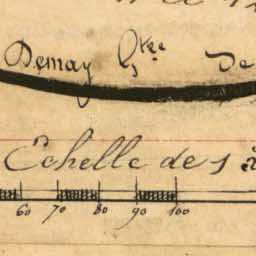 Demay Gtée De
Echelle de 1 à
60 70 80 90 100